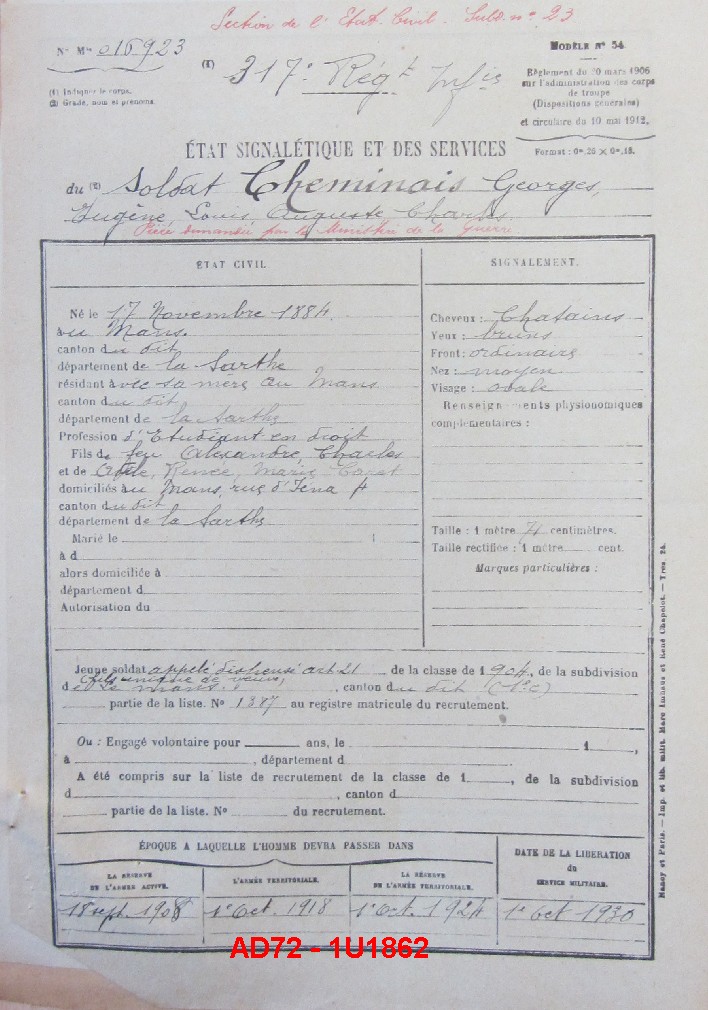 Section de l'Etat-Civil. Subd. n° 23
N° Mle 016923
(1) 317e Régt Infie
MODÈLE N° 54.
Règlement du 20 mars 1906
sur l'administration des corps
de troupe
(Dispositions générales)
et circulaire du 10 mai 1912.
Format : 0m,25 × 0m,15.
(1) Indiquer le corps.
(2) Grade, nom et prénoms.
ÉTAT SIGNALÉTIQUE ET DES SERVICES
du (2) Soldat Cheminais Georges,
Eugène, Louis, Auguste Charles.
Pièce demandée par le Ministère de la Guerre
ÉTAT CIVIL.
Né le 17 Novembre 1884.
au Mans.
canton du dit
département de la Sarthe
résidant avec sa mère au Mans
canton du dit
département de la Sarthe
Profession d'Etudiant en droit
Fils de feu Alexandre, Charles
et de Renée, Marie
domiciliés au Mans, rue d'Iéna 4
canton du dit
département de la Sarthe
Marié le 1
à d
alors domiciliée à
département d
Autorisation du
SIGNALEMENT.
Cheveux : Chatains
Yeux : bruns
Front : ordinaire
Nez : moyen
Visage : ovale
Renseignements physionomiques
complémentaires :
Taille : 1 mètre 74 centimètres.
Taille rectifiée : 1 mètre cent.
Marques particulières :
Jeune soldat appelé dispensé art 21 de la classe de 1904, de la subdivision
(fils unique de veuve)
de Le Mans, canton du dit
partie de la liste. N° 1387 au registre matricule du recrutement.
Ou : Engagé volontaire pour ans, le 1 ,
à , département d
A été compris sur la liste de recrutement de la classe de 1 , de la subdivision
d , canton d
partie de la liste. N° du recrutement.
ÉPOQUE A LAQUELLE L'HOMME DEVRA PASSER DANS
DATE DE LA LIBÉRATION
du
SERVICE MILITAIRE.
LA RÉSERVE
DE L'ARMÉE ACTIVE.
L'ARMÉE TERRITORIALE.
LA RÉSERVE
DE L'ARMÉE TERRITORIALE.
18 sept. 1908
1er Oct. 1918
1er Oct. 1924
1er Oct 1930
Nancy et Paris. — Imp. et lib. milit. Marc Imhaus et René Chapelot. — Trés. 24.
AD72 - 1U1862